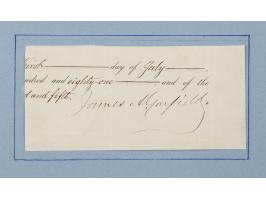 First day of July
ndred and eighty-one and of the
d and fifth.
James A Garfield.